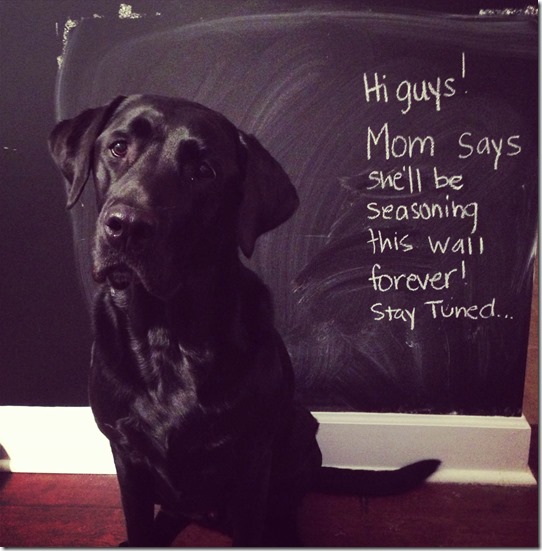 Hi guys!
Mom says
she'll be
seasoning
this wall
forever!
Stay Tuned...